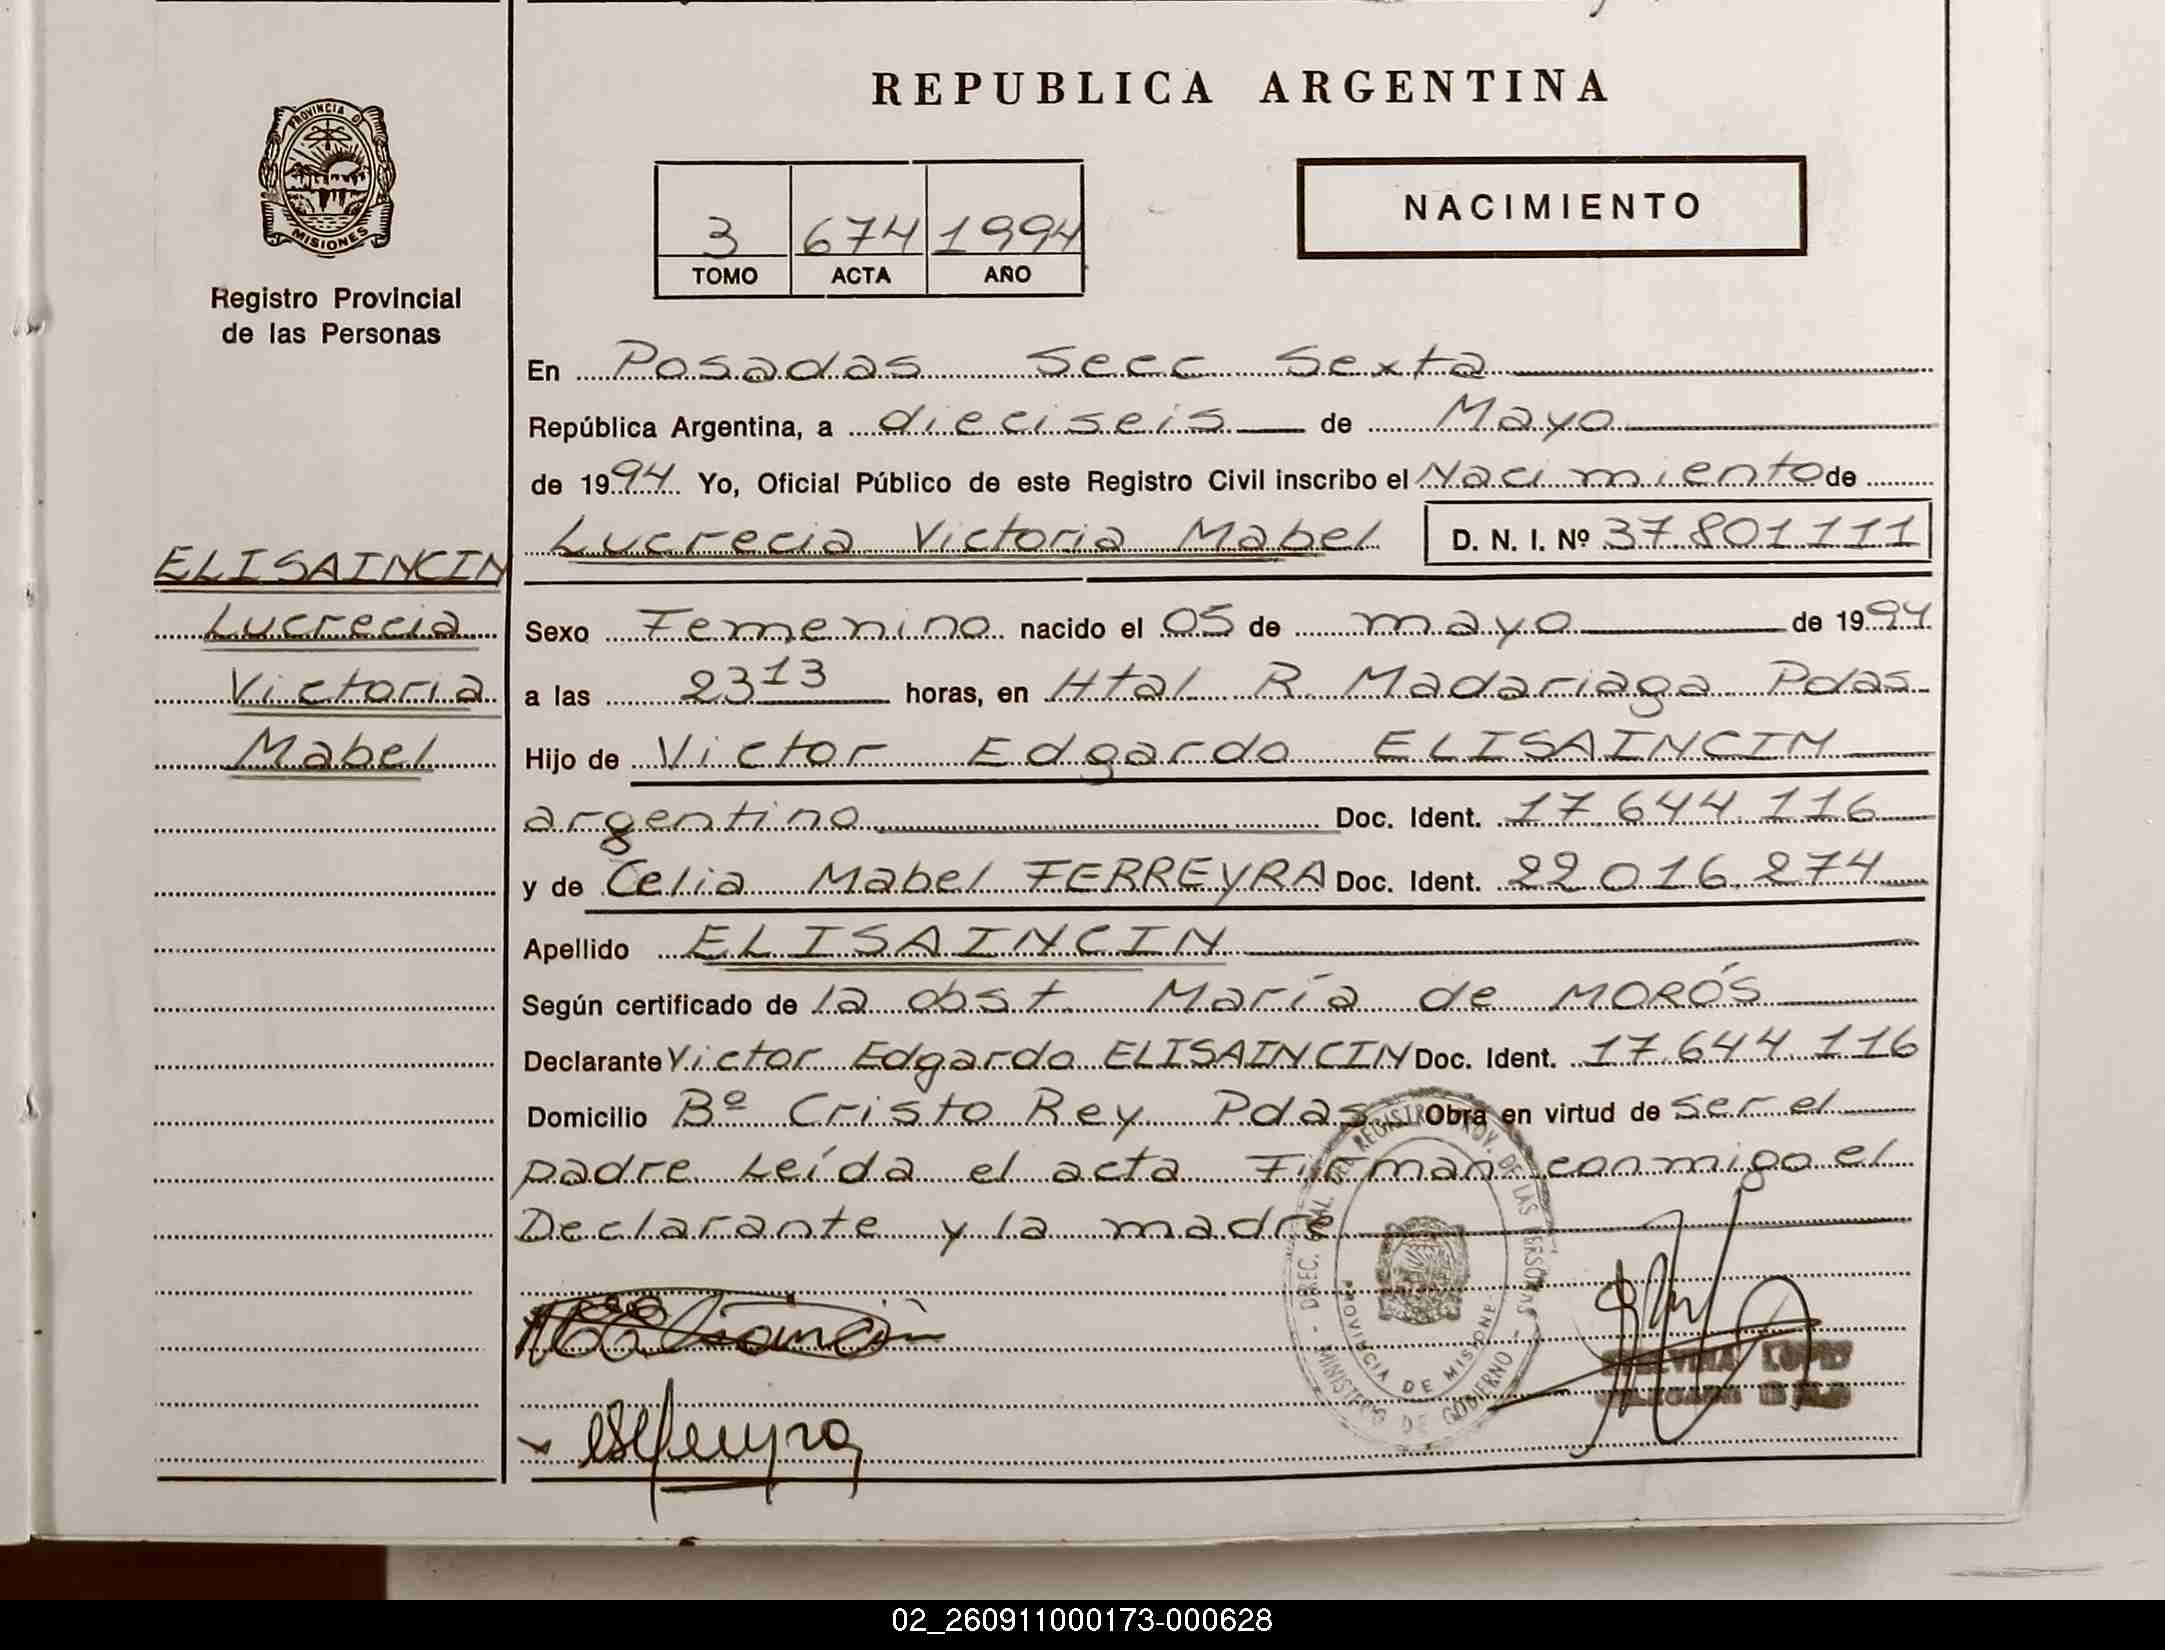 REPUBLICA ARGENTINA
PROVINCIA DE
MISIONES
Registro Provincial
de las Personas
3 674 1994
TOMO ACTA AÑO
NACIMIENTO
En Posadas Secc Sexta
República Argentina, a dieciseis de Mayo
de 1994 Yo, Oficial Público de este Registro Civil inscribo el Nacimiento de
Lucrecia Victoria Mabel D. N. I. Nº 37.801.111
ELISAINCIN
Lucrecia
Victoria
Mabel
Sexo Femenino nacido el 05 de mayo de 1994
a las 23 13 horas, en Htal R. Madariaga Pdas
Hijo de Victor Edgardo ELISAINCIN
argentino Doc. Ident. 17.644.116
y de Celia Mabel FERREYRA Doc. Ident. 22.016.274
Apellido ELISAINCIN
Según certificado de la obst. María de MORÓS
Declarante Victor Edgardo ELISAINCIN Doc. Ident. 17.644.116
Domicilio Bº Cristo Rey Pdas Obra en virtud de ser el
padre Leída el acta Firman conmigo el
Declarante y la madre
DIREC. GRAL. DEL REGISTRO PROV. DE LAS PERSONAS
PROVINCIA DE MISIONES
MINISTERIO DE GOBIERNO
LOPEZ
02_260911000173-000628